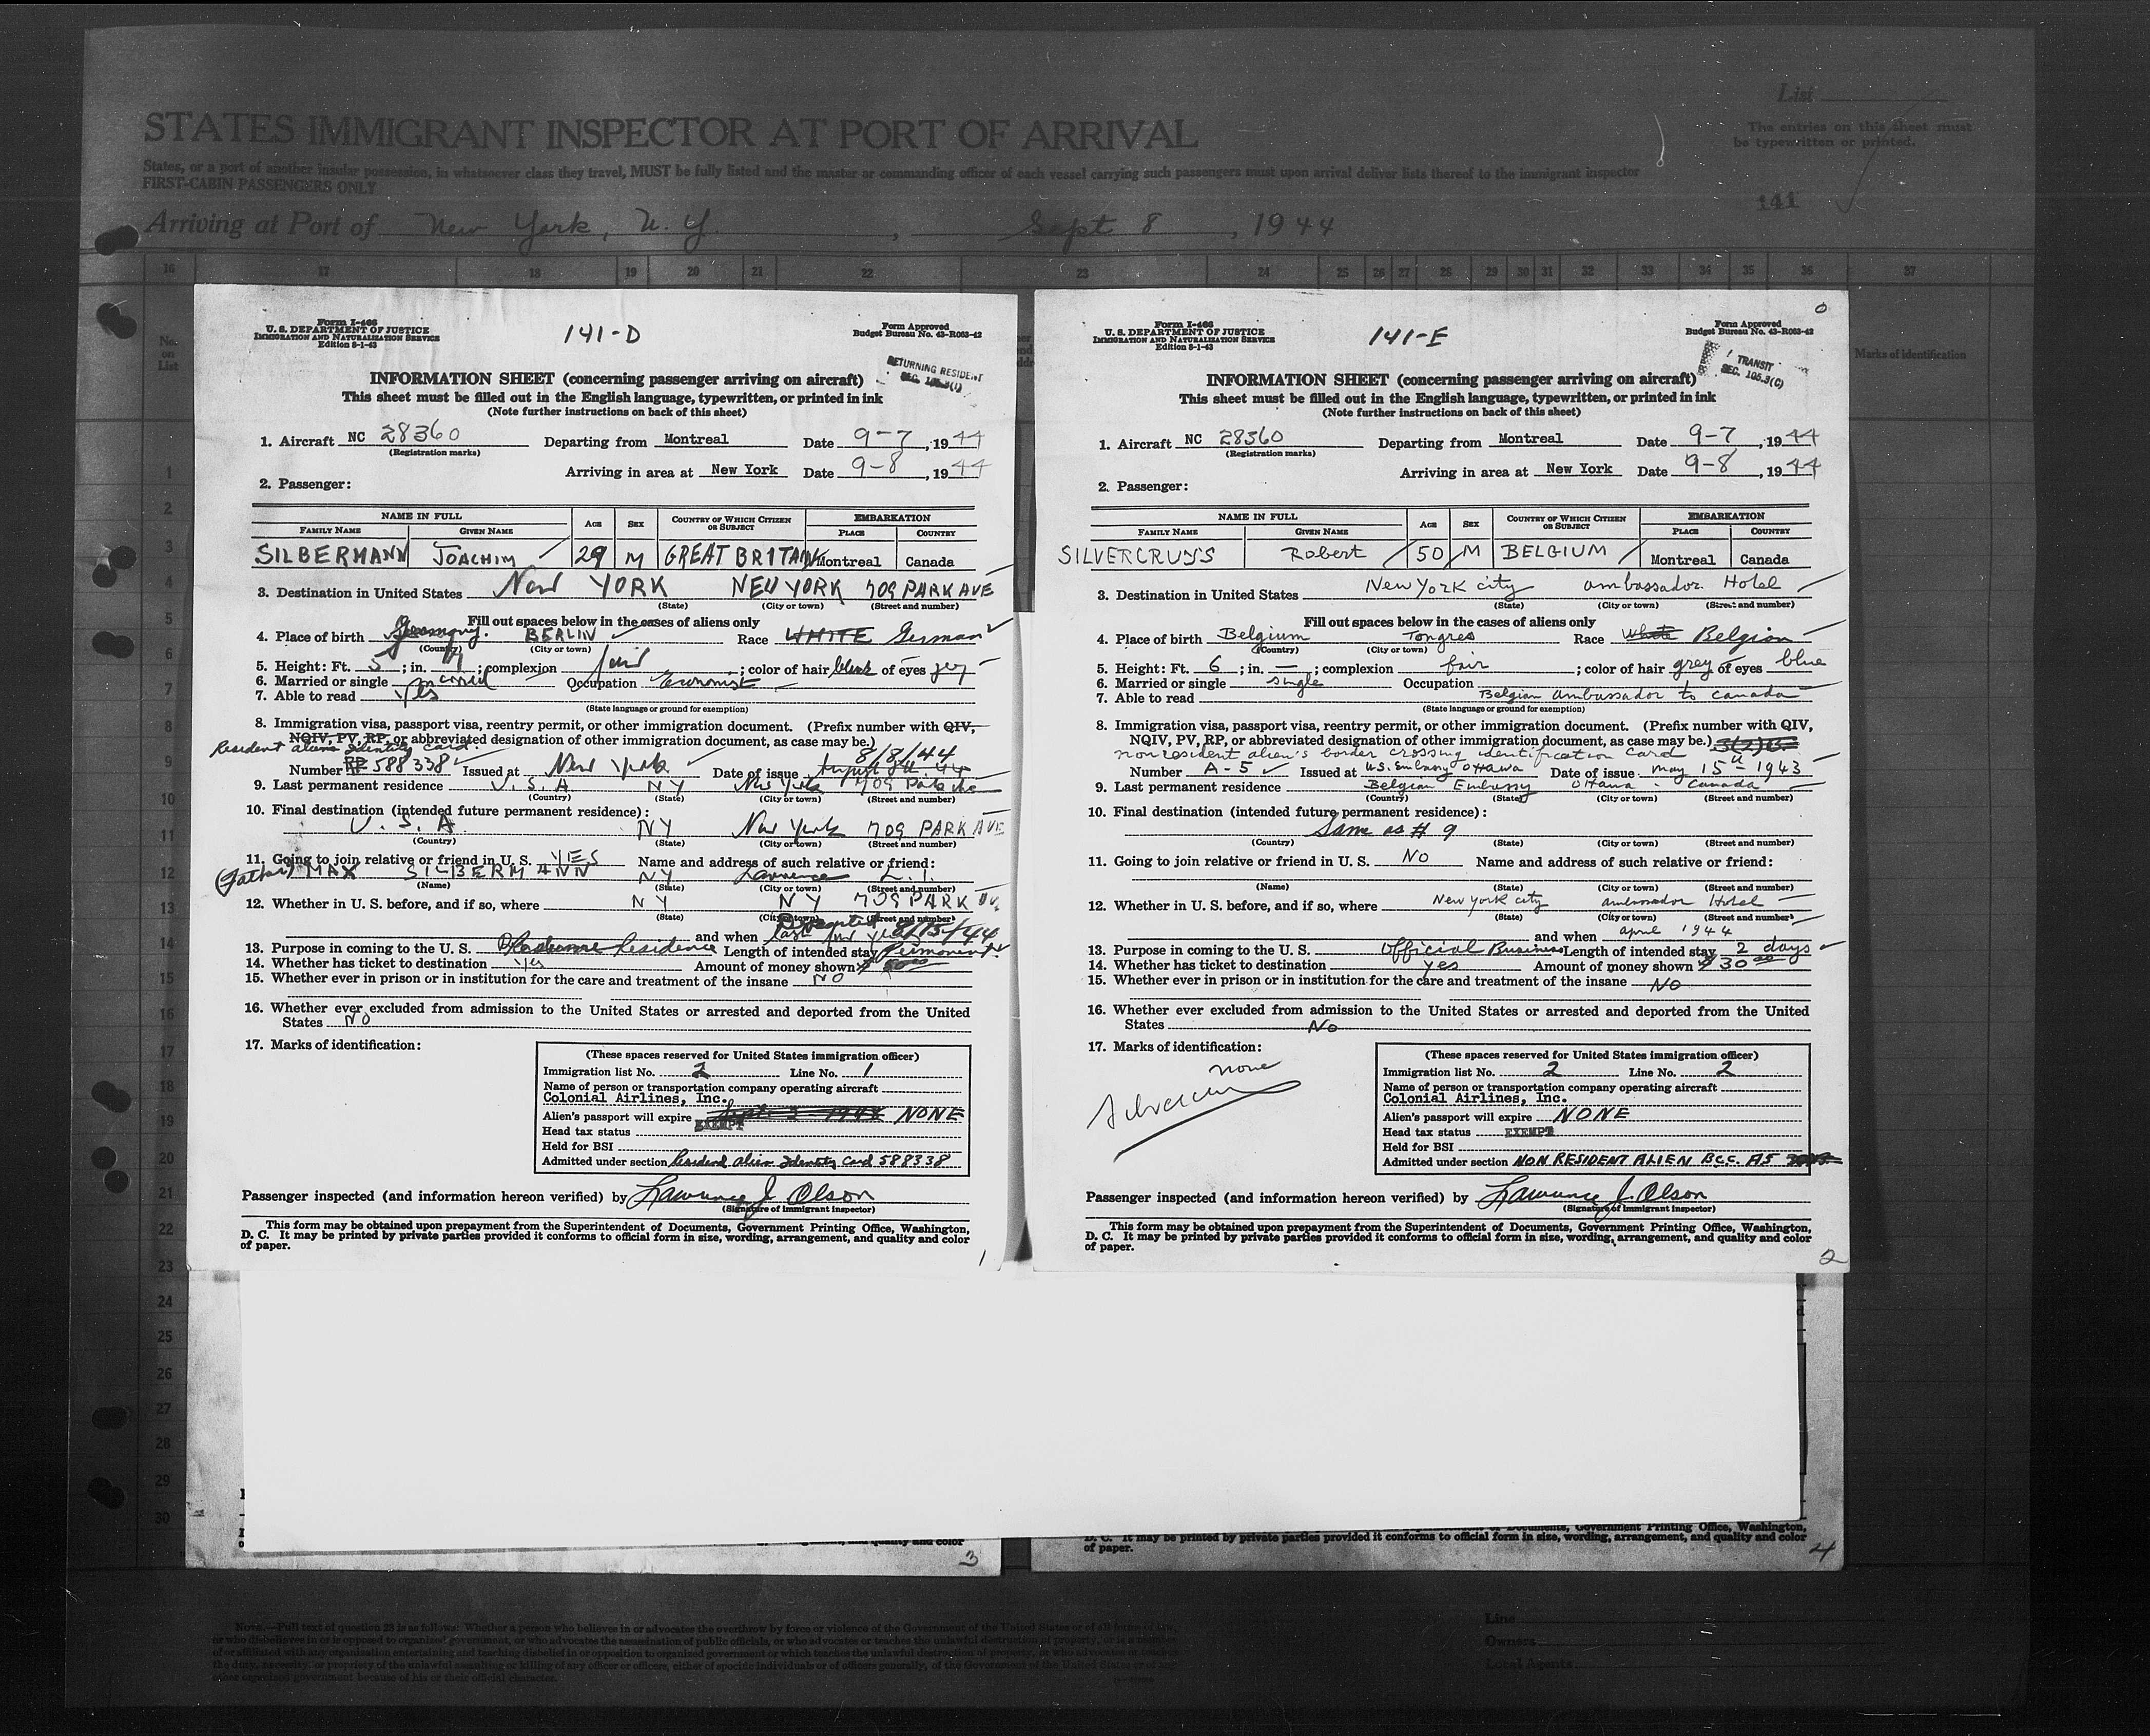 List
STATES IMMIGRANT INSPECTOR AT PORT OF ARRIVAL
The entries on this sheet must
be typewritten or printed.
States, or a port of another insular possession, in whatsoever class they travel, MUST be fully listed and the master or commanding officer of each vessel carrying such passengers must upon arrival deliver lists thereof to the immigrant inspector
FIRST-CABIN PASSENGERS ONLY
141
Arriving at Port of New York, N. Y. , Sept 8 , 1944
16 17 18 19 20 21 22 23 24 25 26 27 28 29 30 31 32 33 34 35 36 37
No. on List
Marks of identification
Form I-466
U. S. DEPARTMENT OF JUSTICE
IMMIGRATION AND NATURALIZATION SERVICE
Edition 8-1-43
141-D
Form Approved
Budget Bureau No. 43-R063-42
RETURNING RESIDENT
SEC. 105.3(1)
INFORMATION SHEET (concerning passenger arriving on aircraft)
This sheet must be filled out in the English language, typewritten, or printed in ink
(Note further instructions on back of this sheet)
1. Aircraft NC 28360 Departing from Montreal Date 9-7, 1944
(Registration marks)
Arriving in area at New York Date 9-8, 1944
2. Passenger:
NAME IN FULL AGE SEX COUNTRY OF WHICH CITIZEN OR SUBJECT EMBARKATION
FAMILY NAME GIVEN NAME PLACE COUNTRY
SILBERMANN JOACHIM 29 M GREAT BRITAIN Montreal Canada
3. Destination in United States New YORK NEW YORK 709 PARK AVE
(State) (City or town) (Street and number)
Fill out spaces below in the cases of aliens only
4. Place of birth Germany. BERLIN Race WHITE German
(Country) (City or town)
5. Height: Ft. 5; in. ; complexion fair; color of hair black of eyes grey
6. Married or single married Occupation Economist
7. Able to read Yes
(State language or ground for exemption)
8. Immigration visa, passport visa, reentry permit, or other immigration document. (Prefix number with QIV,
NQIV, PV, RP, or abbreviated designation of other immigration document, as case may be.)
Resident aliens Identity card. 8/8/44
Number RP 588338 Issued at New York Date of issue August 8th 44
9. Last permanent residence U. S. A NY New York 709 Park Ave
(Country) (State) (City or town) (Street and number)
10. Final destination (intended future permanent residence):
U. S. A NY New York 709 PARK AVE
(Country) (State) (City or town) (Street and number)
11. Going to join relative or friend in U. S. YES Name and address of such relative or friend:
(Father) MAX SILBERMANN NY Lawrence L. I.
(Name) (State) (City or town) (Street and number)
12. Whether in U. S. before, and if so, where NY NY 709 PARK Av.
(State) (City or town) (Street and number)
and when 8/15/44
13. Purpose in coming to the U. S. Residence Length of intended stay Permanent
14. Whether has ticket to destination Yes Amount of money shown $
15. Whether ever in prison or in institution for the care and treatment of the insane NO
16. Whether ever excluded from admission to the United States or arrested and deported from the United
States NO
17. Marks of identification:
(These spaces reserved for United States immigration officer)
Immigration list No. 2 Line No. 1
Name of person or transportation company operating aircraft
Colonial Airlines, Inc.
Alien's passport will expire NONE
Head tax status EXEMPT
Held for BSI
Admitted under section Resident alien Identity Card 588338
Passenger inspected (and information hereon verified) by Lawrence J. Olson
(Signature of immigrant inspector)
This form may be obtained upon prepayment from the Superintendent of Documents, Government Printing Office, Washington,
D. C. It may be printed by private parties provided it conforms to official form in size, wording, arrangement, and quality and color
of paper.
1
Form I-466
U. S. DEPARTMENT OF JUSTICE
IMMIGRATION AND NATURALIZATION SERVICE
Edition 8-1-43
141-E
0
Form Approved
Budget Bureau No. 43-R063-42
TRANSIT
SEC. 105.3(C)
INFORMATION SHEET (concerning passenger arriving on aircraft)
This sheet must be filled out in the English language, typewritten, or printed in ink
(Note further instructions on back of this sheet)
1. Aircraft NC 28360 Departing from Montreal Date 9-7, 1944
(Registration marks)
Arriving in area at New York Date 9-8, 1944
2. Passenger:
NAME IN FULL AGE SEX COUNTRY OF WHICH CITIZEN OR SUBJECT EMBARKATION
FAMILY NAME GIVEN NAME PLACE COUNTRY
SILVERCRUYS Robert 50 M BELGIUM Montreal Canada
3. Destination in United States New York city ambassador Hotel
(State) (City or town) (Street and number)
Fill out spaces below in the cases of aliens only
4. Place of birth Belgium Tongres Race White Belgian
(Country) (City or town)
5. Height: Ft. 6; in. —; complexion fair; color of hair grey of eyes blue
6. Married or single single Occupation
7. Able to read Belgian ambassador to Canada
(State language or ground for exemption)
8. Immigration visa, passport visa, reentry permit, or other immigration document. (Prefix number with QIV,
NQIV, PV, RP, or abbreviated designation of other immigration document, as case may be.)
nonresident alien's border crossing identification card
Number A-5 Issued at U.S. Embassy Ottawa Date of issue may 15th 1943
9. Last permanent residence Belgian Embassy Ottawa - Canada
(Country) (State) (City or town) (Street and number)
10. Final destination (intended future permanent residence):
Same as # 9
(Country) (State) (City or town) (Street and number)
11. Going to join relative or friend in U. S. NO Name and address of such relative or friend:
(Name) (State) (City or town) (Street and number)
12. Whether in U. S. before, and if so, where New York city ambassador Hotel
(State) (City or town) (Street and number)
and when april 1944
13. Purpose in coming to the U. S. Official Business Length of intended stay 2 days
14. Whether has ticket to destination yes Amount of money shown $30.00
15. Whether ever in prison or in institution for the care and treatment of the insane NO
16. Whether ever excluded from admission to the United States or arrested and deported from the United
States No
17. Marks of identification:
none
(These spaces reserved for United States immigration officer)
Immigration list No. 2 Line No. 2
Name of person or transportation company operating aircraft
Colonial Airlines, Inc.
Alien's passport will expire NONE
Head tax status EXEMPT
Held for BSI
Admitted under section NON RESIDENT ALIEN BCC. A5
Passenger inspected (and information hereon verified) by Lawrence J. Olson
(Signature of immigrant inspector)
This form may be obtained upon prepayment from the Superintendent of Documents, Government Printing Office, Washington,
D. C. It may be printed by private parties provided it conforms to official form in size, wording, arrangement, and quality and color
of paper.
2
1
2
3
4
5
6
7
8
9
10
11
12
13
14
15
16
17
18
19
20
21
22
23
24
25
26
27
28
29
30
and quality and color
3
Documents, Government Printing Office, Washington,
D. C. It may be printed by private parties provided it conforms to official form in size, wording, arrangement, and quality and color
of paper.
4
NOTE.—Full text of question 28 is as follows: Whether a person who believes in or advocates the overthrow by force or violence of the Government of the United States or of all forms of law,
or who disbelieves in or is opposed to organized government, or who advocates the assassination of public officials, or who advocates or teaches the unlawful destruction of property, or is a member
of or affiliated with any organization entertaining and teaching disbelief in or opposition to organized government or which teaches the unlawful destruction of property, or who advocates or teaches
the duty, necessity, or propriety of the unlawful assaulting or killing of any officer or officers, either of specific individuals or of officers generally, of the Government of the United States or of any
other organized government because of his or their official character.
Line
Owners
Local Agents